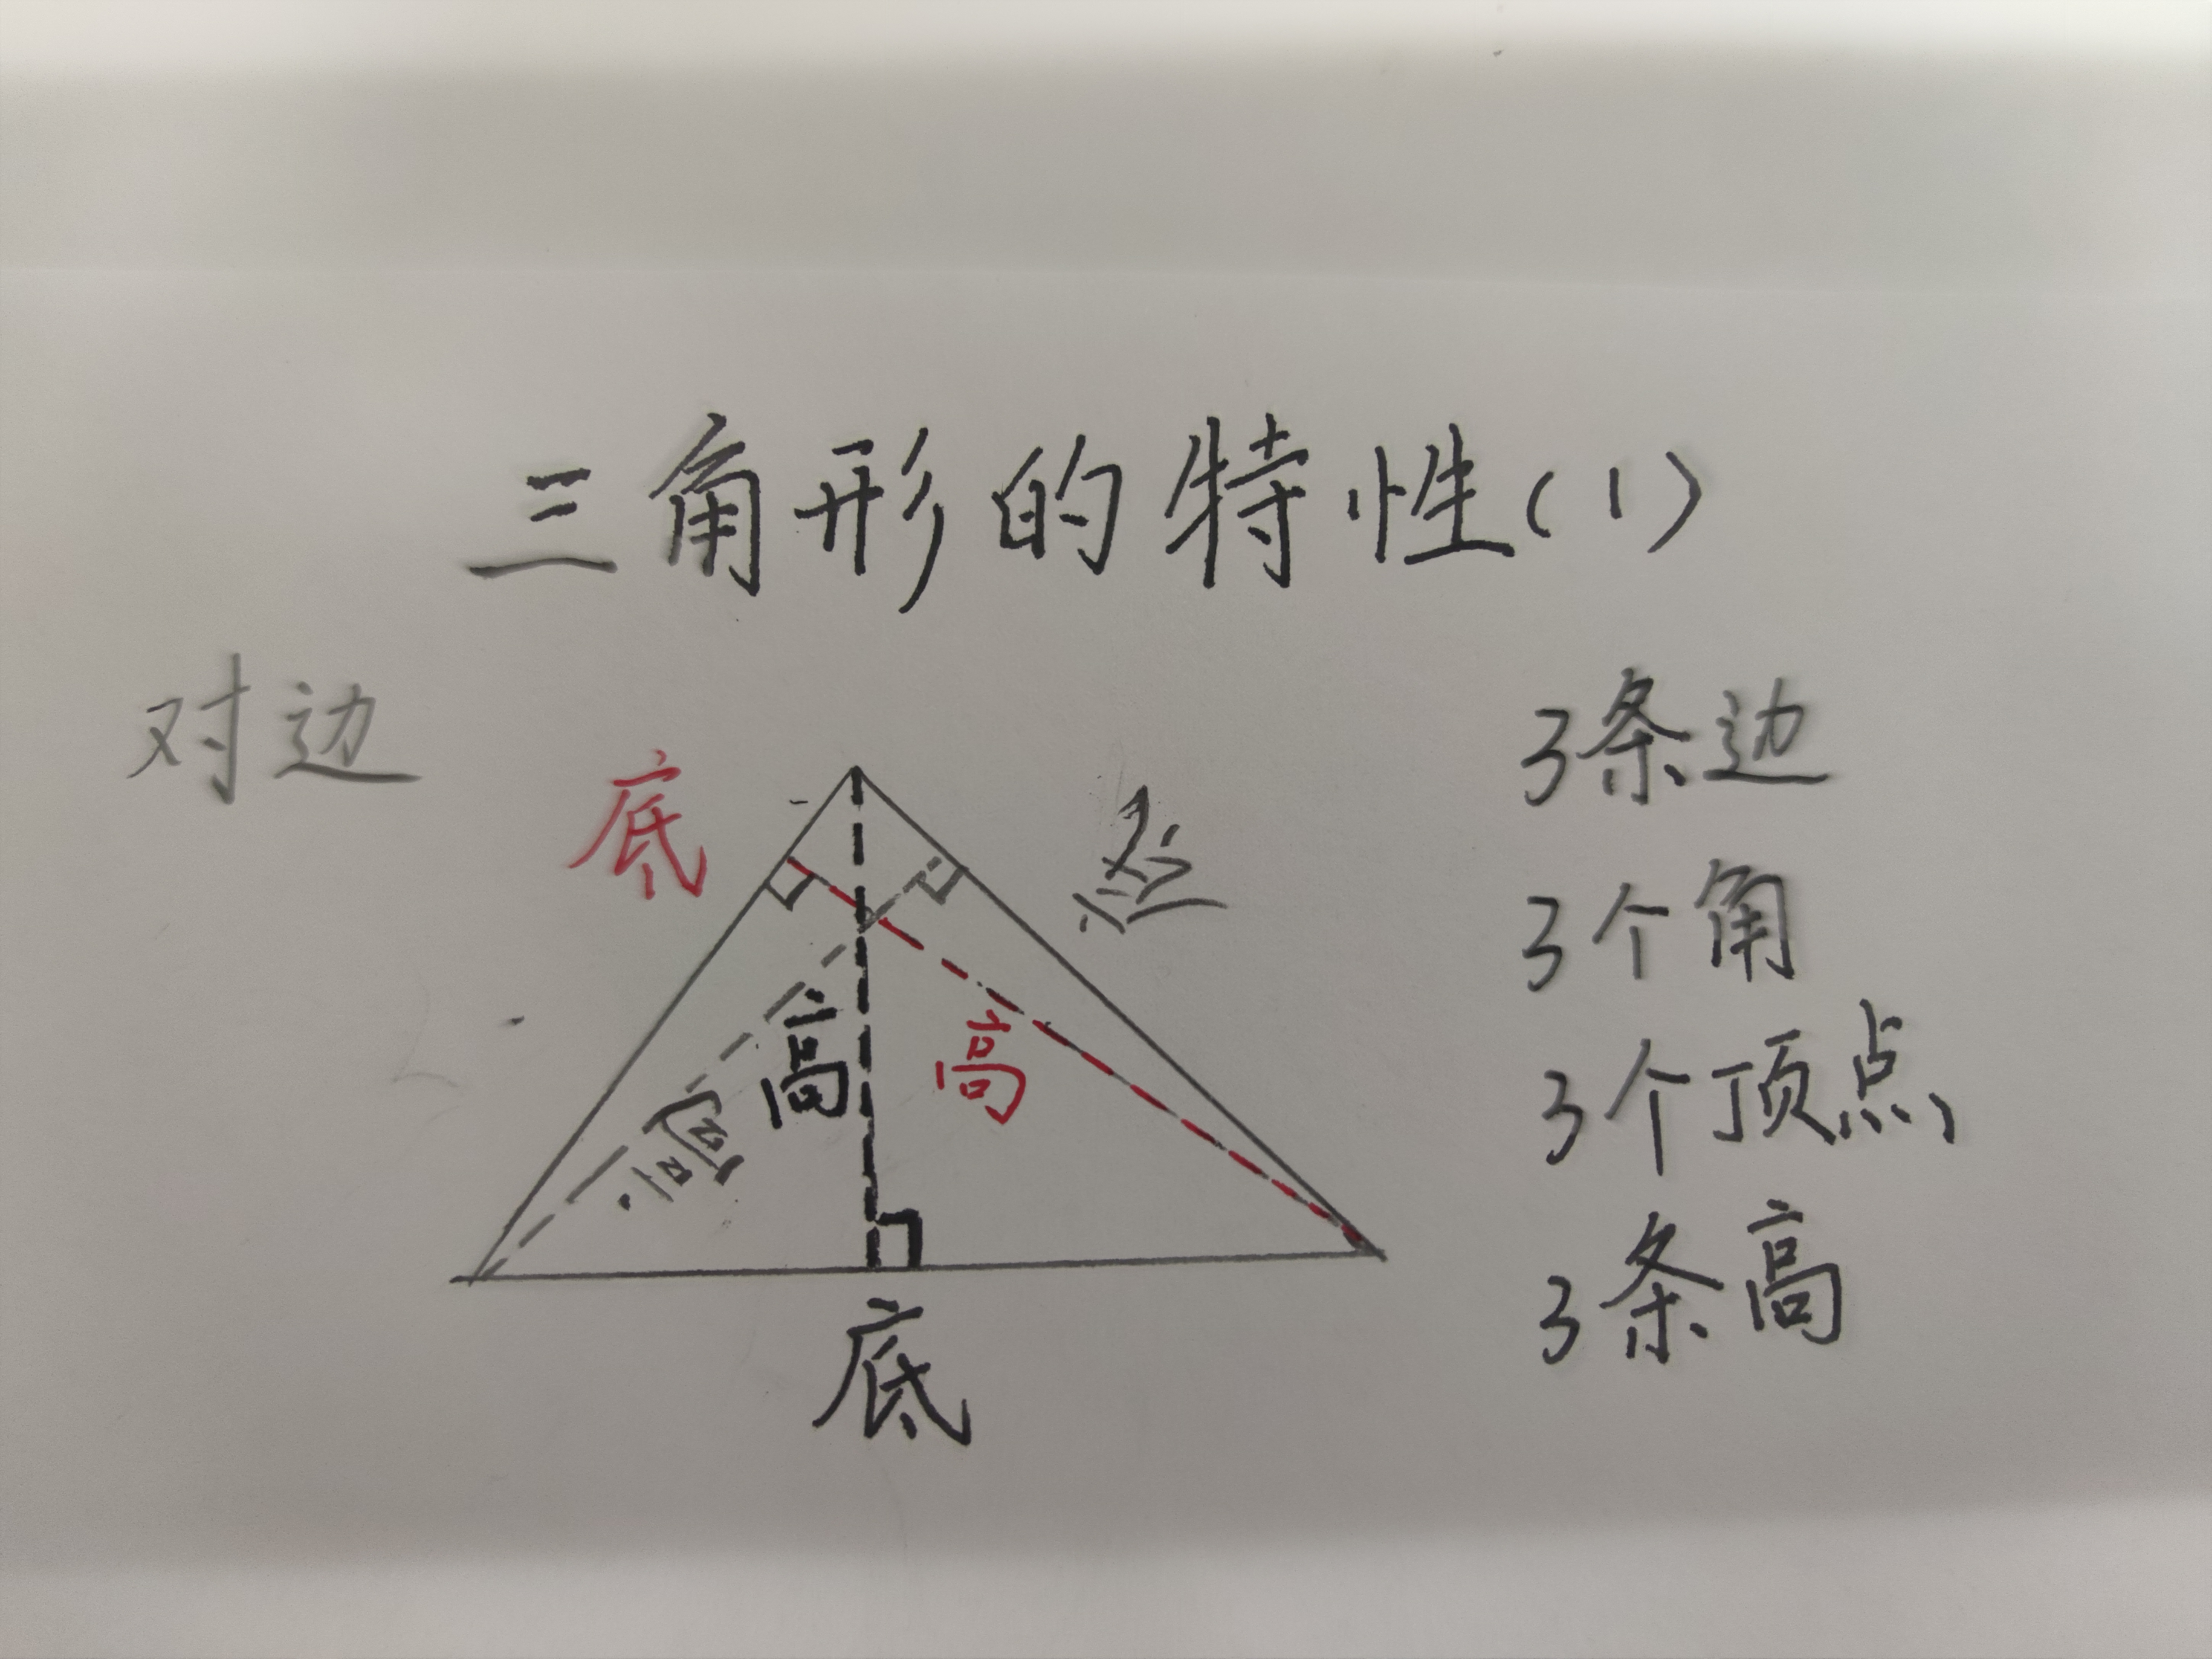 三角形的特性(1)
对边
底
底
高
高
高
底
3条边
3个角
3个顶点
3条高